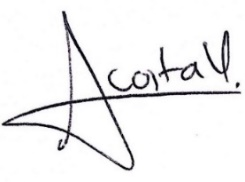 Acosta Y.